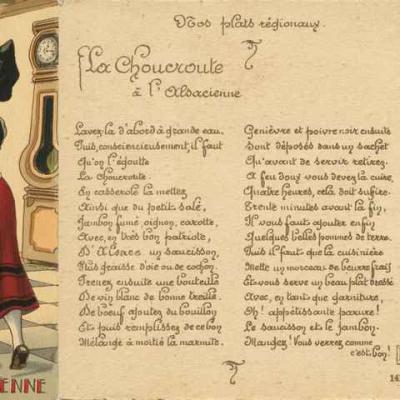 Nos plats régionaux.
La Choucroute
à l'Alsacienne
Lavez-la d'abord à grande eau,
Puis, consciencieusement, il faut
Qu'on l'égoutte
La Choucroute.
En casserole la mettez
Ainsi que du petit salé,
Jambon fumé, oignon, carotte,
Avec, en très bon patriote,
D'Alsace un saucisson,
Puis graisse d'oie ou de cochon.
Prenez ensuite une bouteille
De vin blanc de bonne treille.
De boeuf ajoutez du bouillon
Et puis remplissez de ce bon
Mélange à moitié la marmite.
Genièvre et poivre noir ensuite
Sont déposés dans un sachet
Qu'avant de servir retirez.
A feu doux vous devez la cuire,
Quatre heures, cela doit suffire.
Trente minutes avant la fin,
Il vous faut ajouter enfin
Quelques belles pommes de terre.
Puis il faut que la cuisinière
Mette un morceau de beurre frais
Et vous serve un beau plat dressé
Avec, en tant que garniture,
Oh! appétissante parure!
Le saucisson et le jambon.
Mangez! Vous verrez comme
c'est bon!
ENNE
14